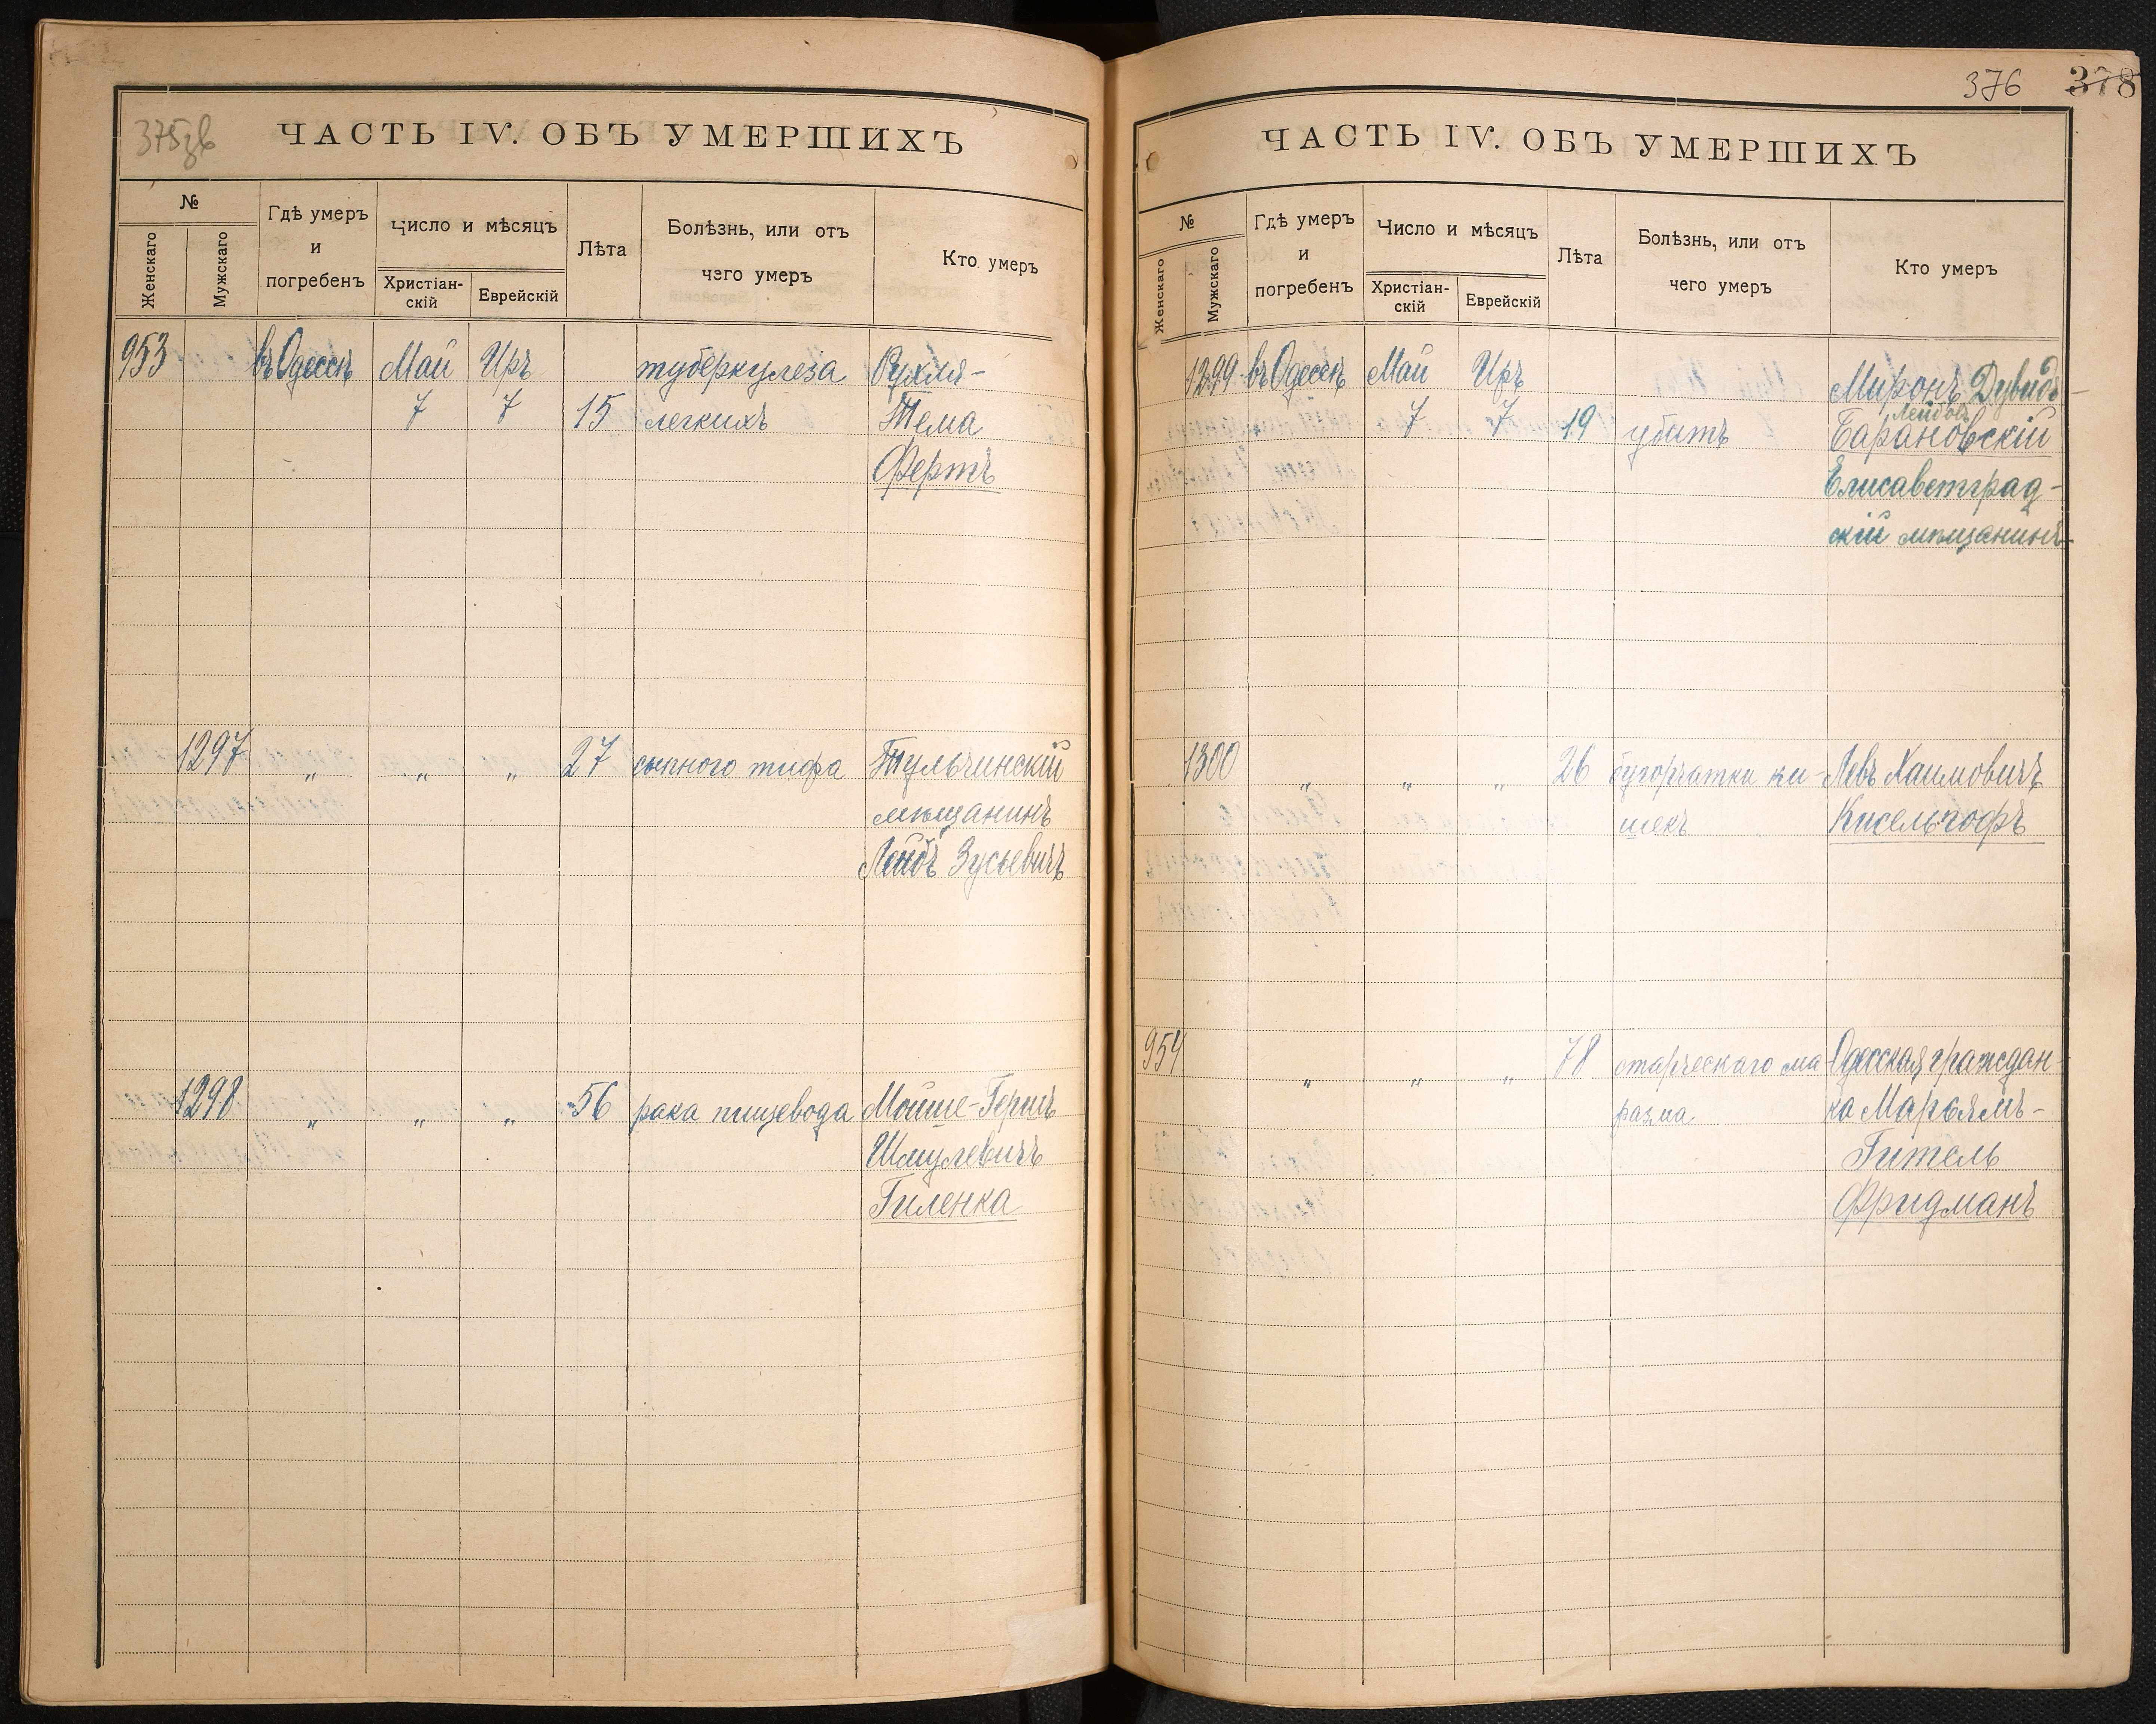 375зв
ЧАСТЬ IV. ОБЪ УМЕРШИХЪ
№
Женскаго
Мужскаго
Гдѣ умеръ
и
погребенъ
Число и мѣсяцъ
Христіан-
скій
Еврейскій
Лѣта
Болѣзнь, или отъ
чего умеръ
Кто умеръ
953 въ Одессѣ Май Иръ туберкулеза Рухля-
7 7 15 легкихъ Тема
Фертъ
1297 „ „ „ 27 сыпного тифа Тульчинскій
мѣщанинъ
Лейбъ Зусьевичъ
1298 „ „ „ 56 рака пищевода Мойше-Гершъ
Шмулевичъ
Гиленка
376 378
ЧАСТЬ IV. ОБЪ УМЕРШИХЪ
№
Женскаго
Мужскаго
Гдѣ умеръ
и
погребенъ
Число и мѣсяцъ
Христіан-
скій
Еврейскій
Лѣта
Болѣзнь, или отъ
чего умеръ
Кто умеръ
1299 въ Одессѣ Май Иръ Миронъ Дувидъ-
Лейбовъ
7 7 19 убитъ Барановскій
Елисаветград-
скій мѣщанинъ
1300 „ „ „ 26 бугорчатки ки- Левъ Хаимовичъ
шекъ Кисельгофъ
954 „ „ „ 78 старческаго ма Одесская граждан-
разма ка Марьямъ-
Гитель
Фридманъ